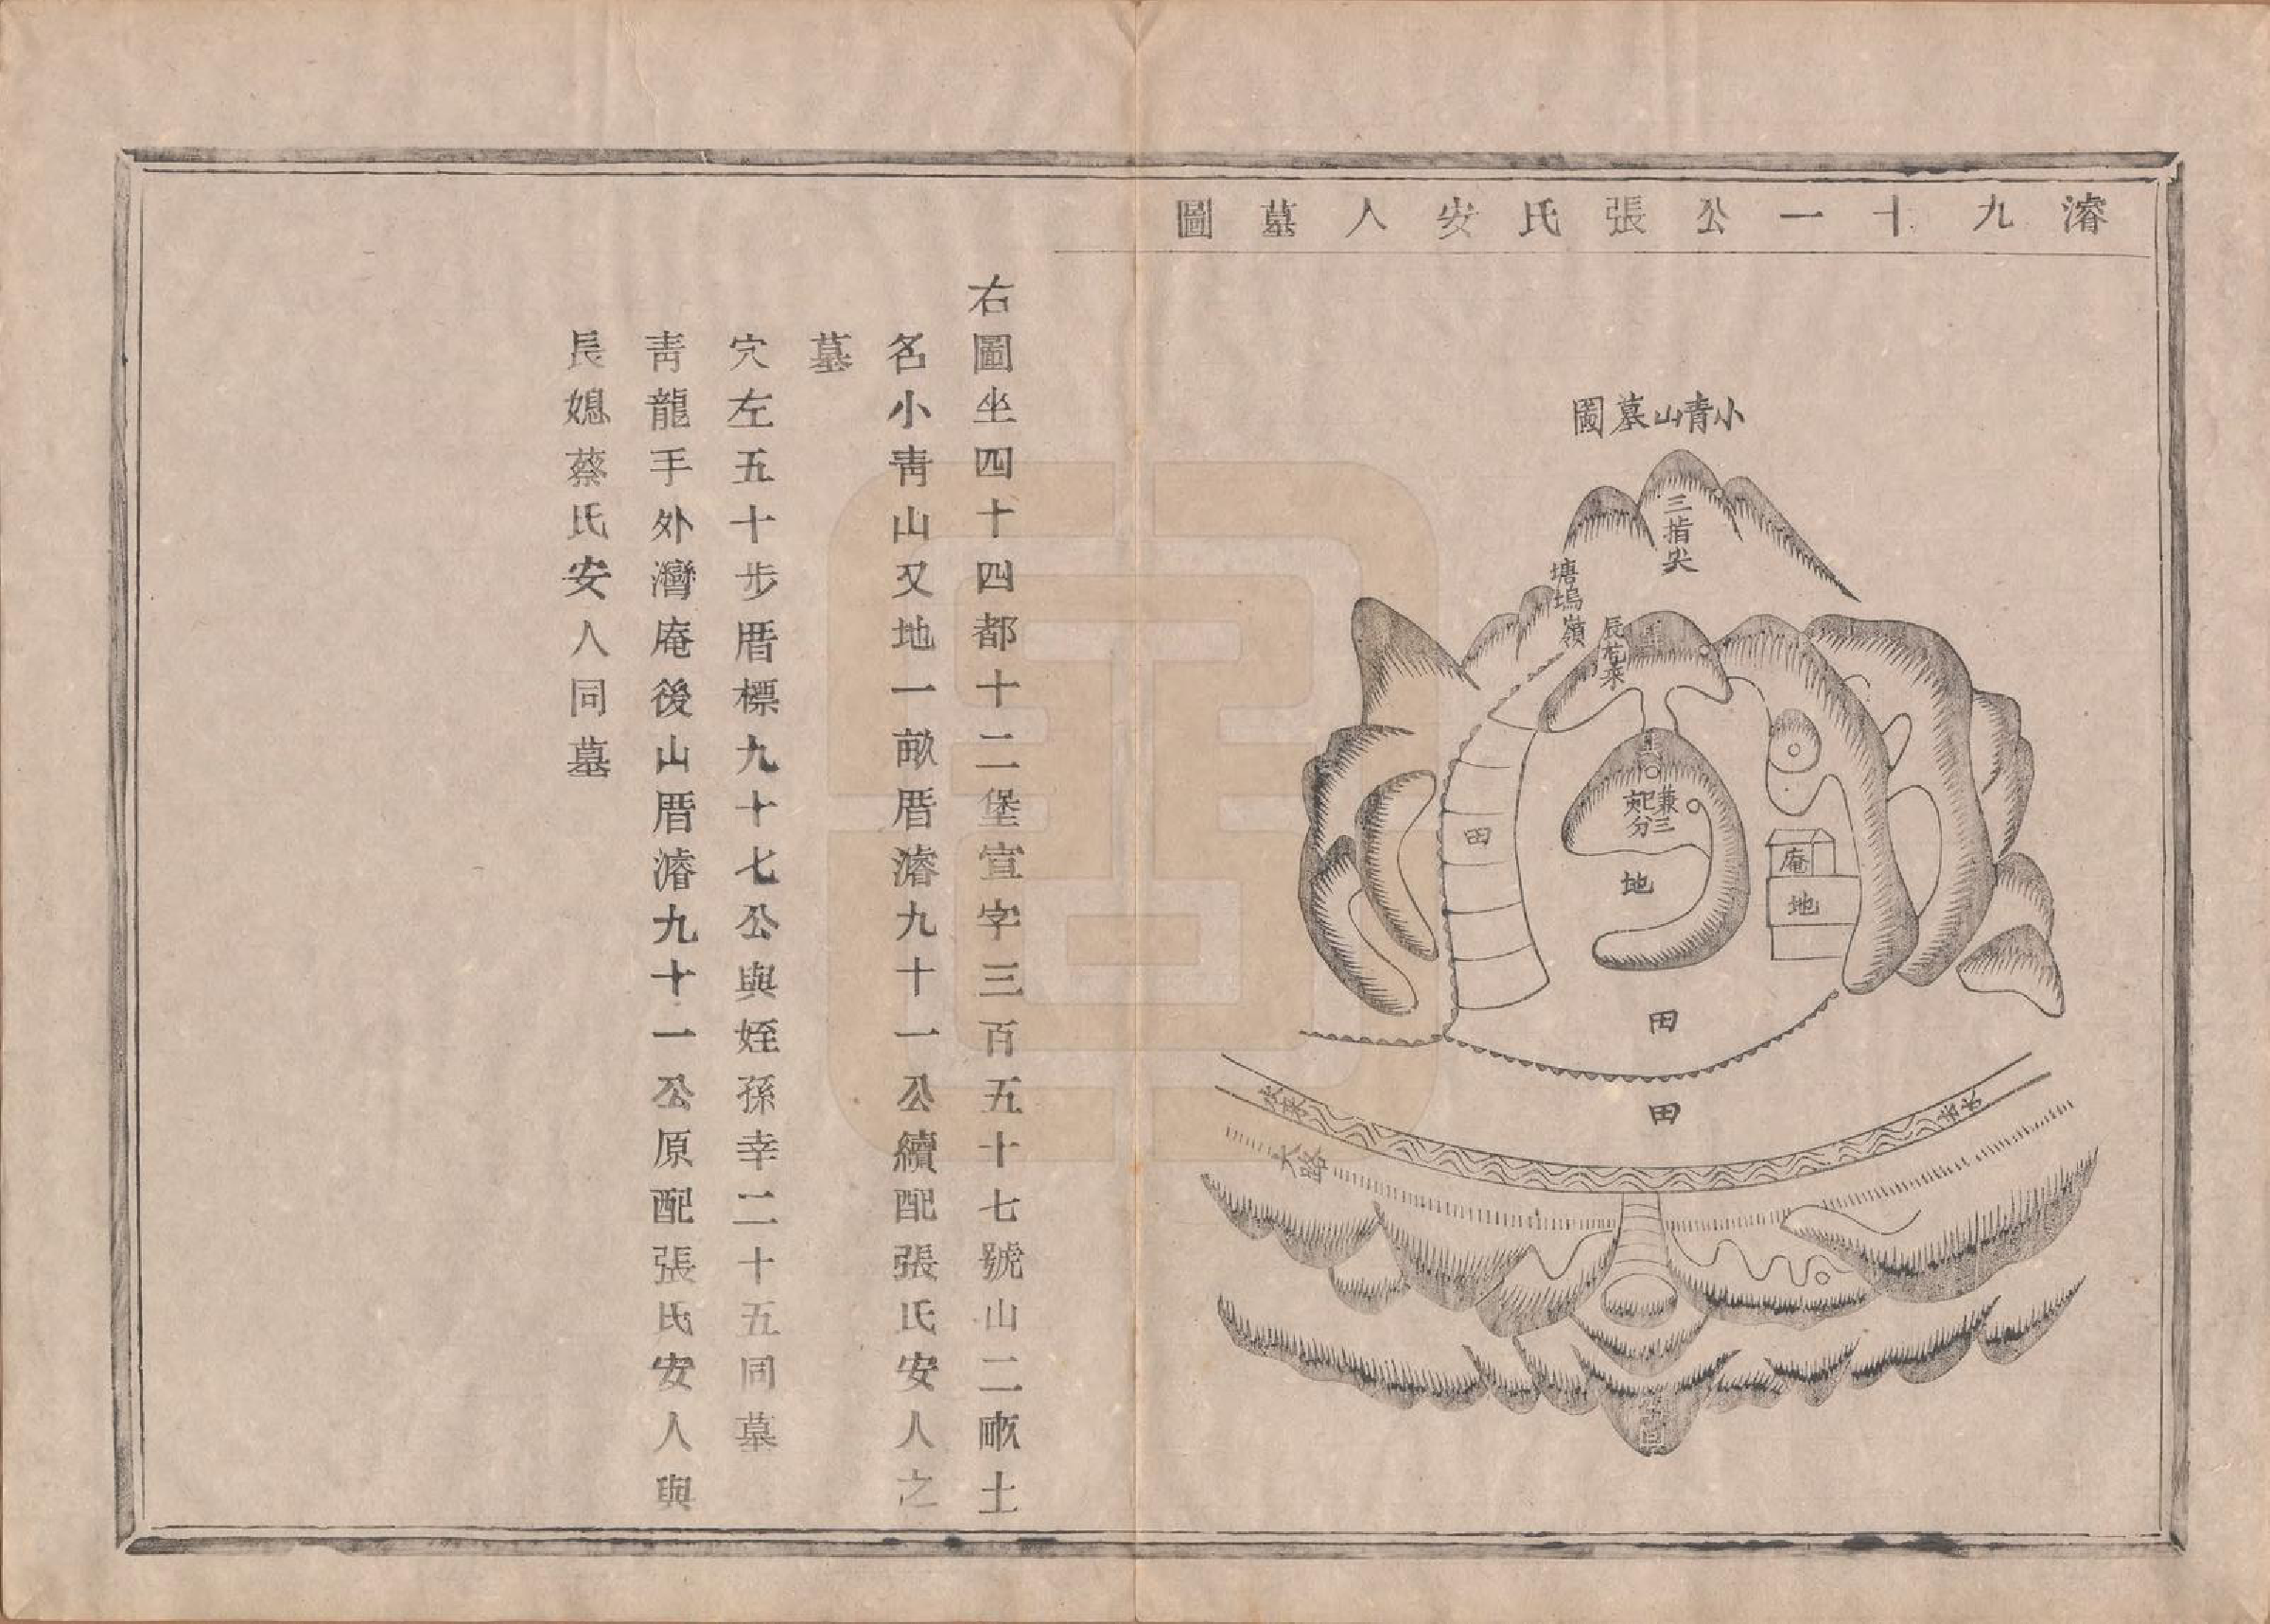 濬九十一公張氏安人墓圖
小青山墓圖
三指尖
塘塢嶺
辰龍來
兼巳
三分
地
田
庵
地
田
田
水來
水去
大路
右圖坐四十四都十二堡宣字三百五十七號山二畝土
名小青山又地一畝厝濬九十一公續配張氏安人之
墓
穴左五十步厝標九十七公與姪孫幸二十五同墓
青龍手外灣庵後山厝濬九十一公原配張氏安人與
長媳蔡氏安人同墓